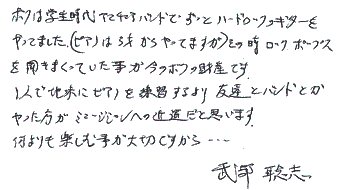 ボクは学生時代ヤマチャバンドでずっとハードロックのギターを
やってました。(ピアノは5才からやってますが)その時ロック ポップス
を聞きまくっていた事が今のボクの財産です。
1人で地味にピアノを練習するより 友達とバンドとか
やった方がミュージシャンへの近道だと思います。
何よりも楽しむ事が大切ですから…
武部 聡志